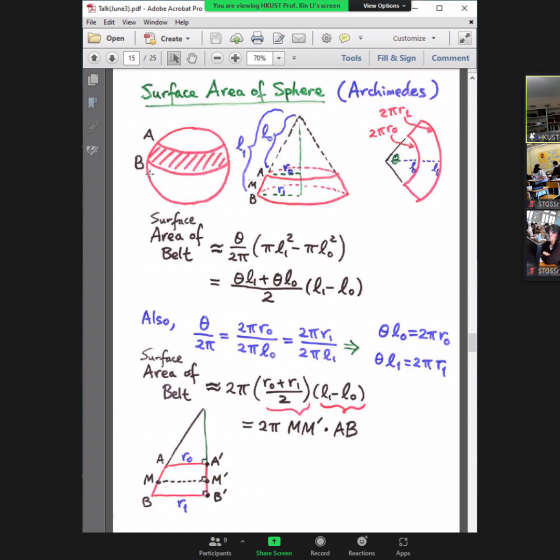 You are viewing HKUST Prof. Kin LI's screen
View Options
Talk(June3).pdf - Adobe Acrobat Pro
Open
Customize
15 / 25
70%
Tools
Fill & Sign
Comment
Surface Area of Sphere (Archimedes)
A
B
l₁
l₀
r₀
A
M
r₁
B
2πr₁
2πr₀
θ
l₀
l₁
Surface
Area of
Belt
≈ θ/2π (πl₁² − πl₀²)
= (θl₁ + θl₀)/2 (l₁ − l₀)
Also, θ/2π = 2πr₀/2πl₀ = 2πr₁/2πl₁ ⇒
θl₀ = 2πr₀
θl₁ = 2πr₁
Surface
Area of
Belt
≈ 2π ((r₀ + r₁)/2) (l₁ − l₀)
= 2π MM′ · AB
A
r₀
A′
M
M′
B
r₁
B′
HKUST
STGSS
STGSSr
9
Participants
Share Screen
Record
Reactions
Apps